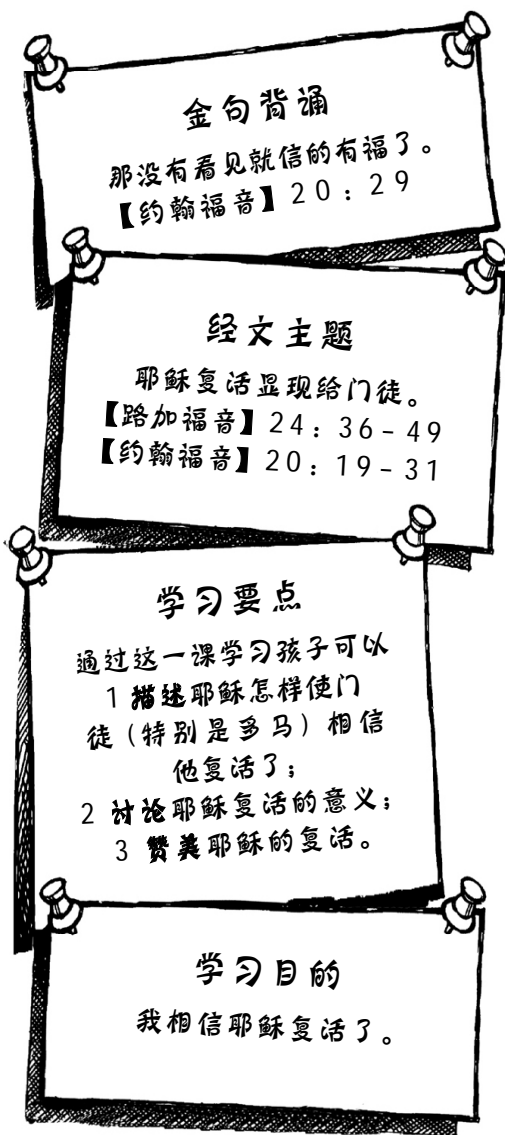 金句背诵
那没有看见就信的有福了。
【约翰福音】20：29
经文主题
耶稣复活显现给门徒。
【路加福音】24：36-49
【约翰福音】20：19-31
学习要点
通过这一课学习孩子可以
1 描述耶稣怎样使门
徒（特别是多马）相信
他复活了；
2 讨论耶稣复活的意义；
3 赞美耶稣的复活。
学习目的
我相信耶稣复活了。